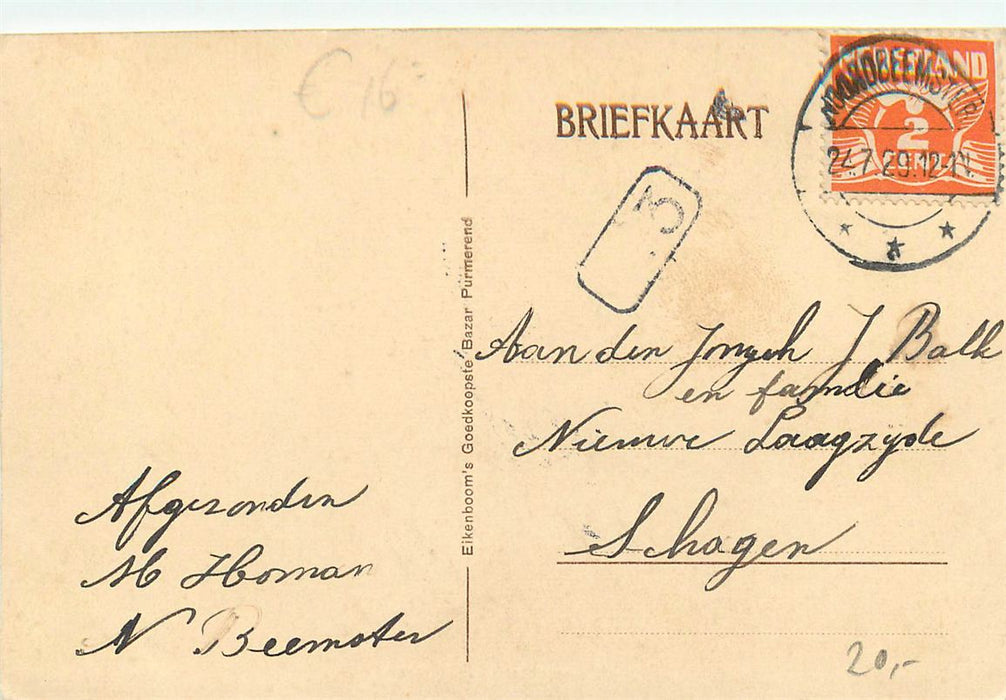 € 16
BRIEFKAART
NEDERLAND
2
CENT
NOORDBEEMSTER
24.7.29.12-1N.
3
Eikenboom's Goedkoopste Bazar Purmerend
Aan den Jongeh J Balk
en familie
Nieuwe Laagzyde
Schagen
Afgezonden
M Homan
N Beemster
20,-